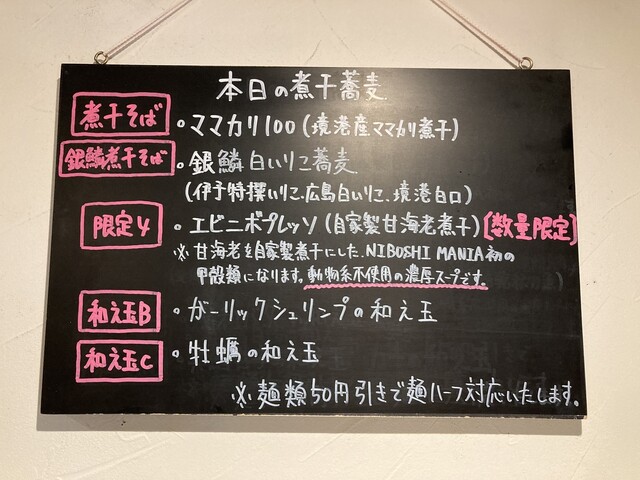 本日の煮干蕎麦
煮干そば 。ママカリ100(境港産ママカリ煮干)
銀鱗煮干そば 。銀鱗白いりこ蕎麦
(伊予特撰いりこ、広島白いりこ、境港白口)
限定4 。エビニボプレッソ(自家製甘海老煮干)【数量限定】
※甘海老を自家製煮干にした、NIBOSHI MANIA初の
甲殻類になります。動物系不使用の濃厚スープです。
和え玉B 。ガーリックシュリンプの和え玉
和え玉C 。牡蠣の和え玉
※麺類50円引きで麺ハーフ対応いたします。